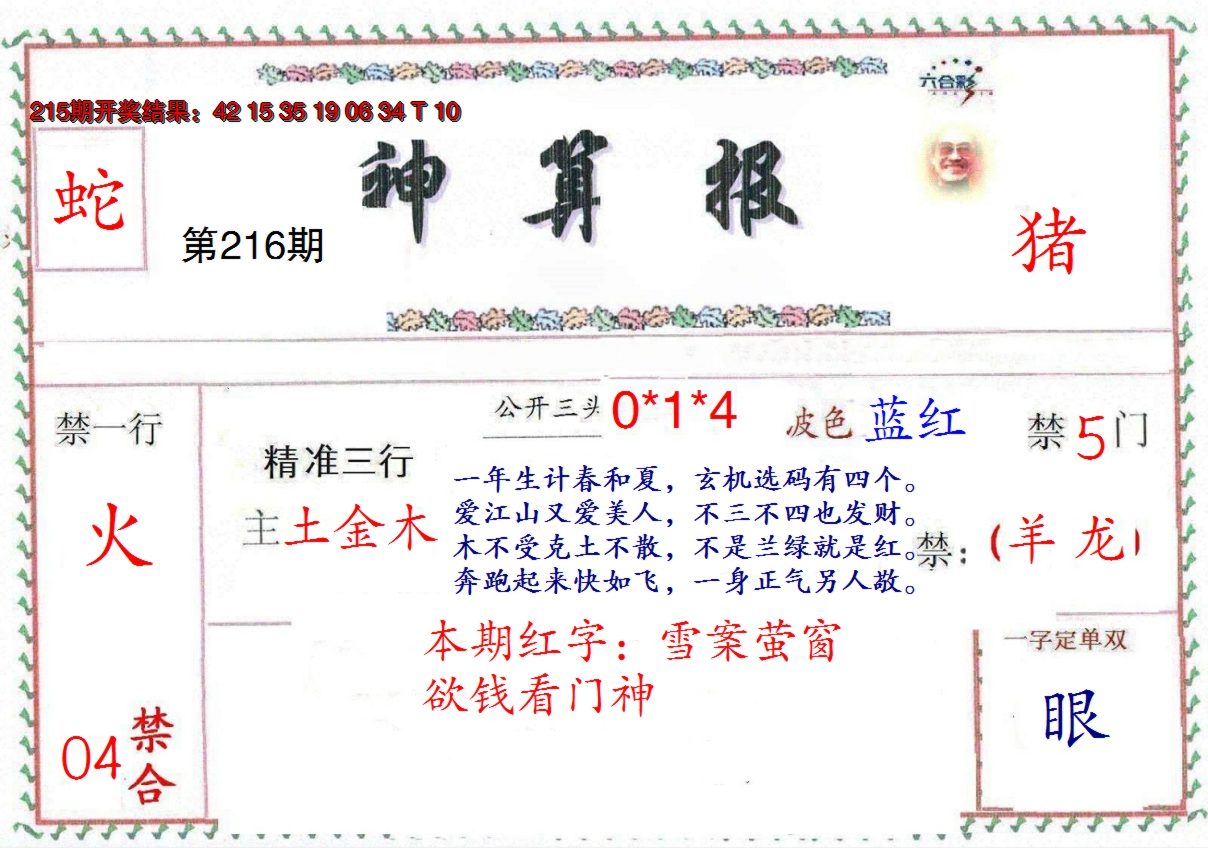 六合彩
215期开奖结果：42 15 35 19 06 34 T 10
神算报
蛇
第216期
猪
禁一行
火
04
禁合
精准三行
主土金木
公开三头 0*1*4
波色 蓝红
禁5门
一年生计春和夏，玄机选码有四个。
爱江山又爱美人，不三不四也发财。
木不受克土不散，不是兰绿就是红。
奔跑起来快如飞，一身正气另人敬。
禁：（羊 龙）
本期红字：雪案萤窗
欲钱看门神
一字定单双
眼